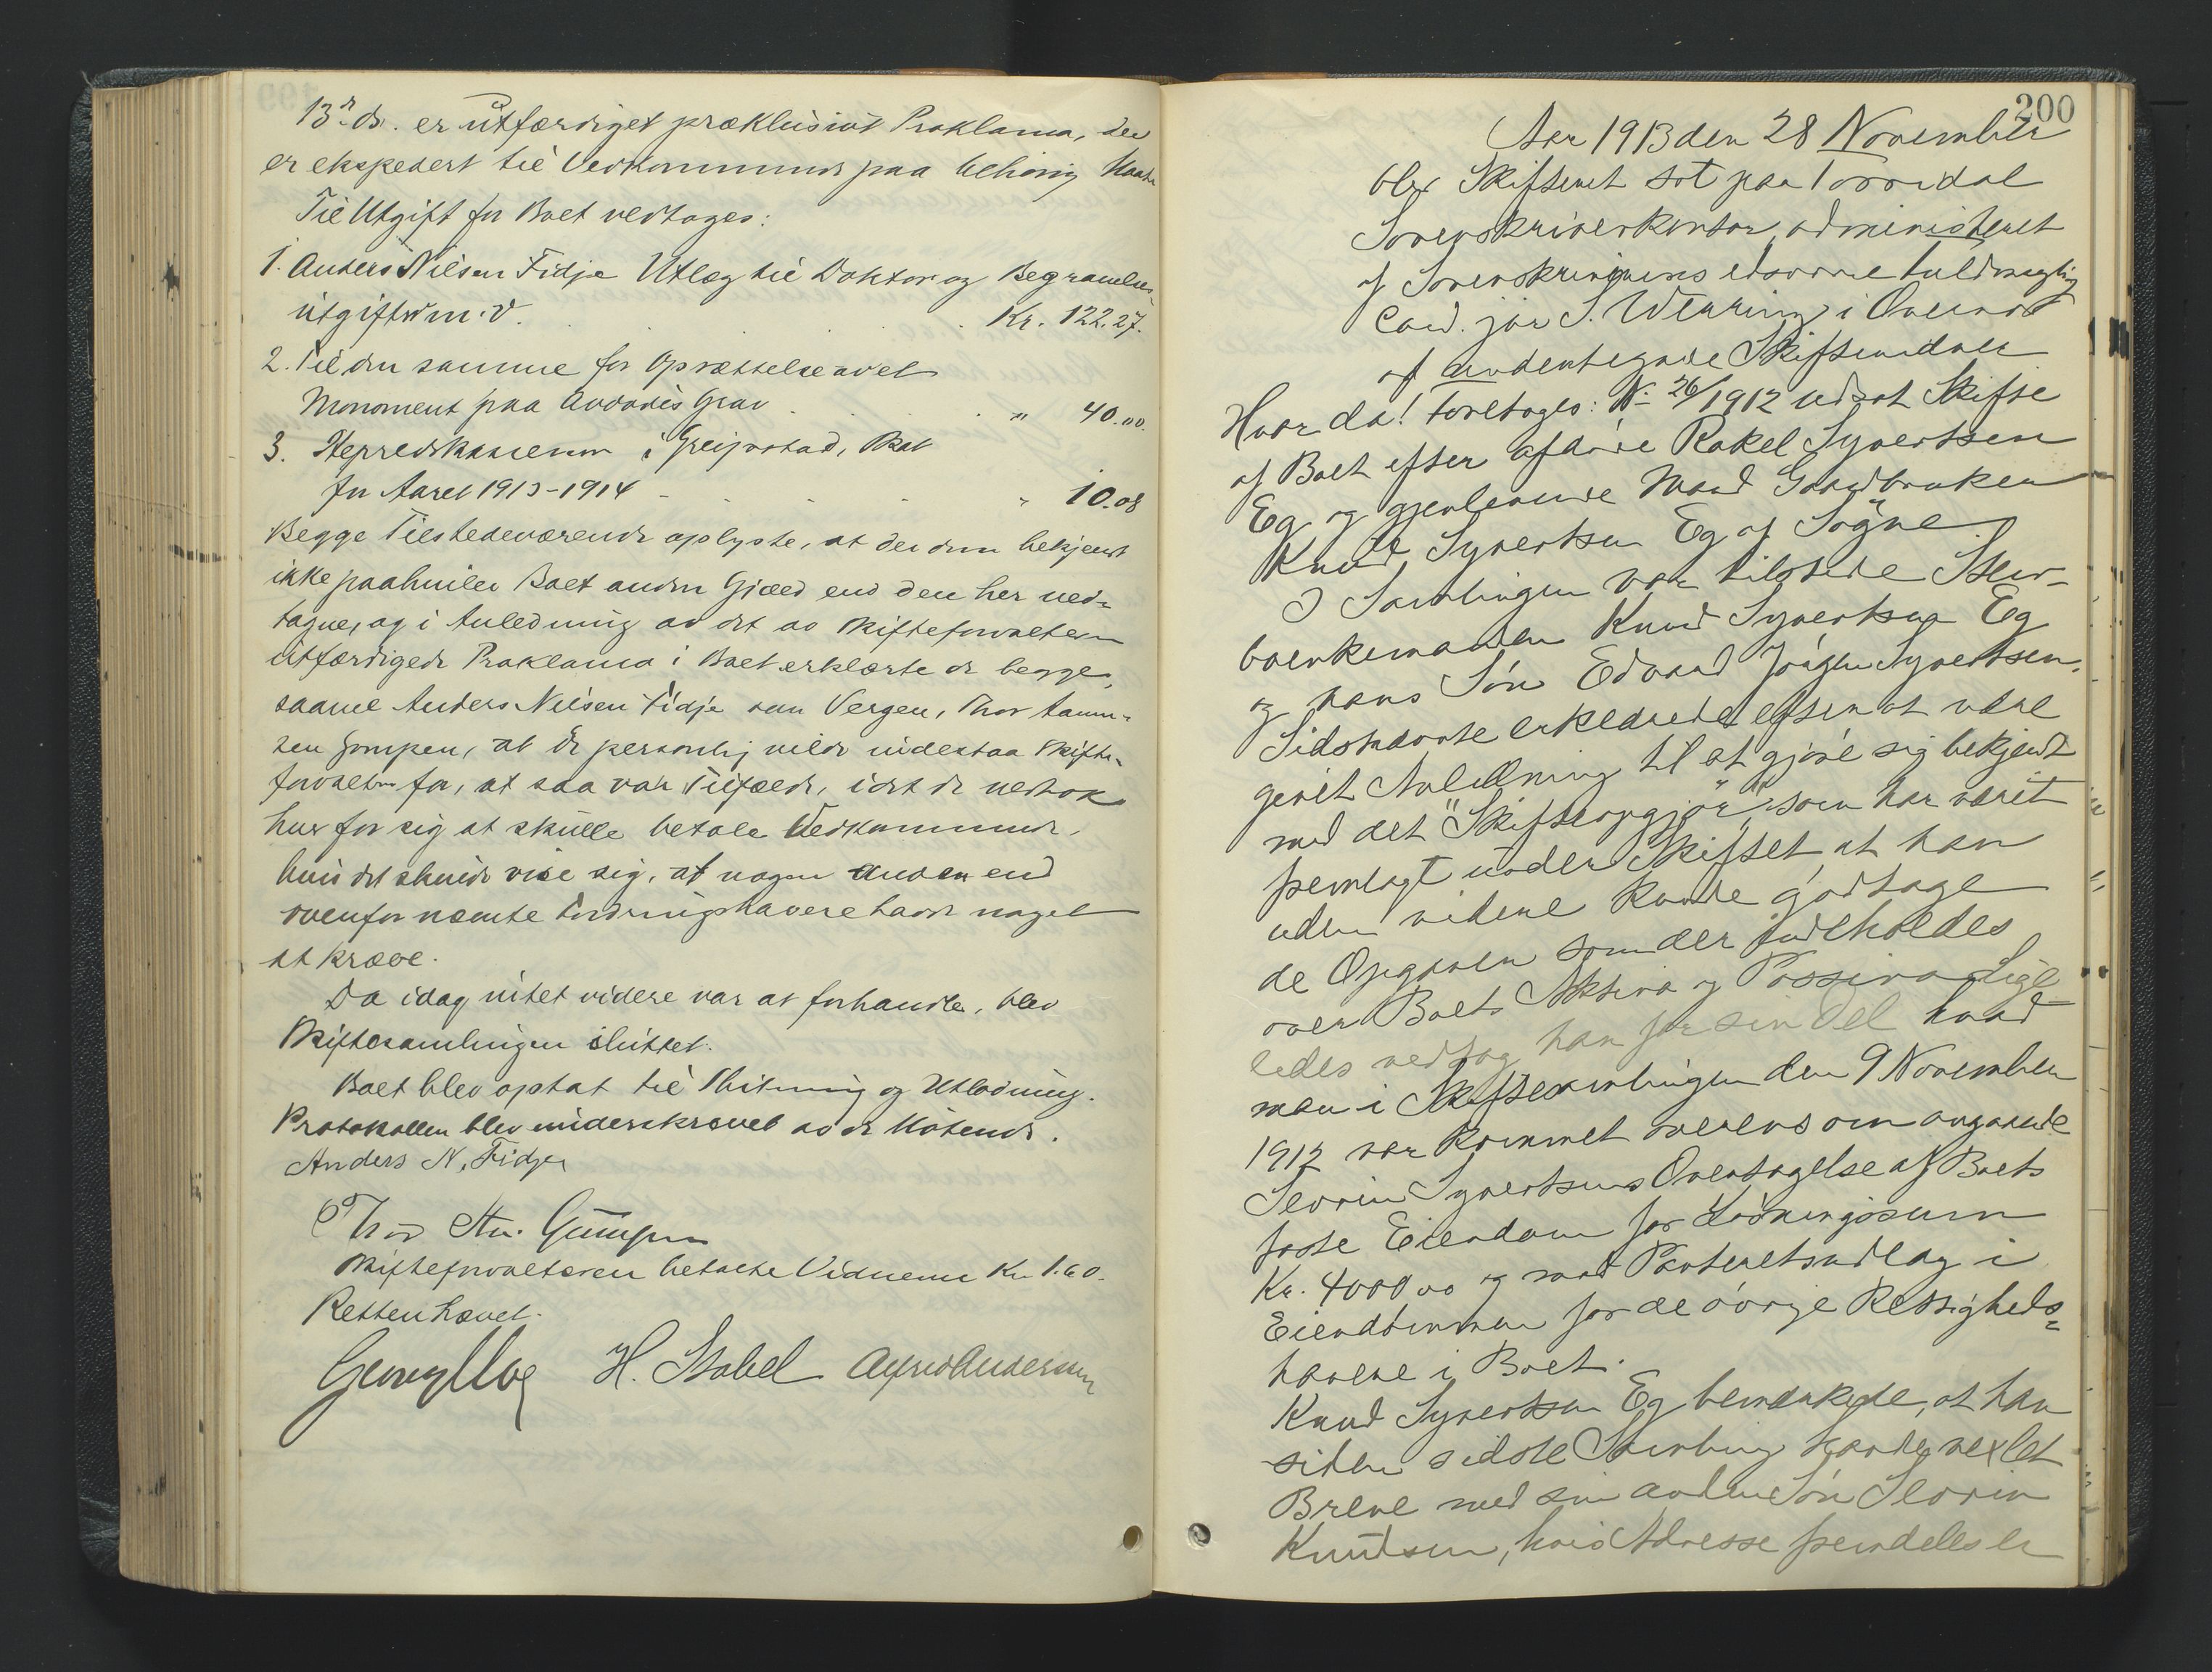 13de ds. er utfærdiget præklusivt Proklama, der
er ekspedert til Vedkommende paa behørig Maate
Til Utgift for Boet vedtages:
1. Anders Nilsen Fidje Utlæg til Doktor og Begravelses-
utgifter m.v. Kr. 122.27.
2. Til den samme for Oprættelse av et
Monoment paa Avdødes Grav " 40.00.
3. Herredskassereren i Greipstad, Skat
for Aaret 1913-1914 - " 10.08
Begge Tilstedeværende oplyste, at der dem bekjendt
ikke paahviler Boet anden Gjæld end den her ved-
tagne, og i Anledning av det av Skifteforvalteren
utfærdigede Proklama i Boet erklærte de begge,
saavel Anders Nilsen Fidje som Vergen, Thor
Gumpen, at de personlig vilde indestaa Skifte-
forvalteren for, at saa var Tilfælde, idet de vedtok
hver for sig at skulle betale Vedkommende,
hvis det skulde vise sig, at nogen anden end
ovenfor nævnte Fordringshavere havde noget
at kræve.
Da idag intet videre var at forhandle, blev
Skiftesamlingen sluttet.
Boet blev optat til Slutning og Utlodning.
Protokollen blev underskrevet av de Møtende.
Anders N. Fidje
Thor An. Gumpen
Skifteforvalteren betalte Vidnerne Kr. 1.60.
Retten hævet.
H. Stabel Alfred Andersen
200
Aar 1913 den 28 November
blev Skifteret sat paa Torridal
Sorenskriverkontor, administreret
af Sorenskriverens edsvorne Fuldmægtig
Cand. jur S. Wehring i Overvær
af undertegnede Skiftevidner
Hvor da! Foretoges: No 26/1912 udsat Skifte
af Boet efter afdøde Rakel Syvertsen
Eg og gjenlevende Mand Gaardbruker
Knud Syvertsen Eg af Søgne
I Samlingen var tilstede Stev-
boenkemanden Knud Syvertsen Eg
og hans Søn Edvard Jørgen Syvertsen.
Sidstnævnte erklærede efter at være
givet Anledning til at gjøre sig bekjendt
med det "Skifteopgjør" som har været
fremlagt under Skiftet, at han
uden videre kunde godtage
de Opgaver som der indeholdes
over Boets Aktiva og Passiva. Lige-
ledes vedtog han for sin Del hvad
man i Skiftesamlingen den 9 November
1912 var kommet overens om angaaende
Severin Syvertsens Overtagelse af Boets
faste Eiendom for Løsningssum
Kr. 4000 00 og mod Panteretsudlæg i
Eiendommen for de øvrige Rettigheds-
havere i Boet.
Knud Syvertsen Eg bemærkede, at han
siden sidste Samling havde vexlet
Breve med sin anden Søn Severin
Knudsen, hvis Adresse fremdeles er